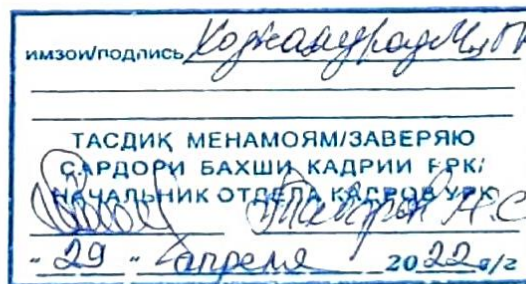 имзои/подпись
ТАСДИҚ МЕНАМОЯМ/ЗАВЕРЯЮ
САРДОРИ БАХШИ КАДРИИ РРК/
НАЧАЛЬНИК ОТДЕЛА КАДРОВ УРК
"29" апреля 2022 с/г